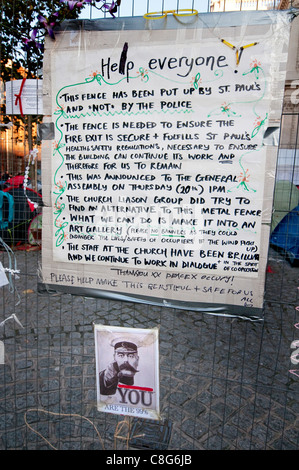 Help everyone!
THIS FENCE HAS BEEN PUT UP BY ST PAUL'S
AND *NOT* BY THE POLICE
THE FENCE IS NEEDED TO ENSURE THE
FIRE EXIT IS SECURE + FULFILLS ST PAUL'S
HEALTH/SAFETY REGULATIONS, NECESSARY TO ENSURE
THE BUILDING CAN CONTINUE ITS WORK AND
THEREFORE FOR US TO REMAIN
THIS WAS ANNOUNCED TO THE GENERAL
ASSEMBLY ON THURSDAY (20TH) 1PM.
THE CHURCH LIASON GROUP DID TRY TO
FIND AN ALTERNATIVE TO THIS METAL FENCE
WHAT WE CAN DO IS MAKE IT INTO AN
ART GALLERY (PLEASE NO BANNERS AS THEY COULD
OF OCCUPIERS IF THE WIND PICKS
UP)
THE STAFF AT THE CHURCH HAVE BEEN BRILLIANT
AND WE CONTINUE TO WORK IN DIALOGUE * IN THE SPIRIT
OF CO-OPERATION
THANKYOU XX
PLEASE HELP MAKE THIS BEAUTIFUL + SAFE FOR US
ALL
YOU
ARE THE 99%
alamy
C8G6JB
www.alamy.com